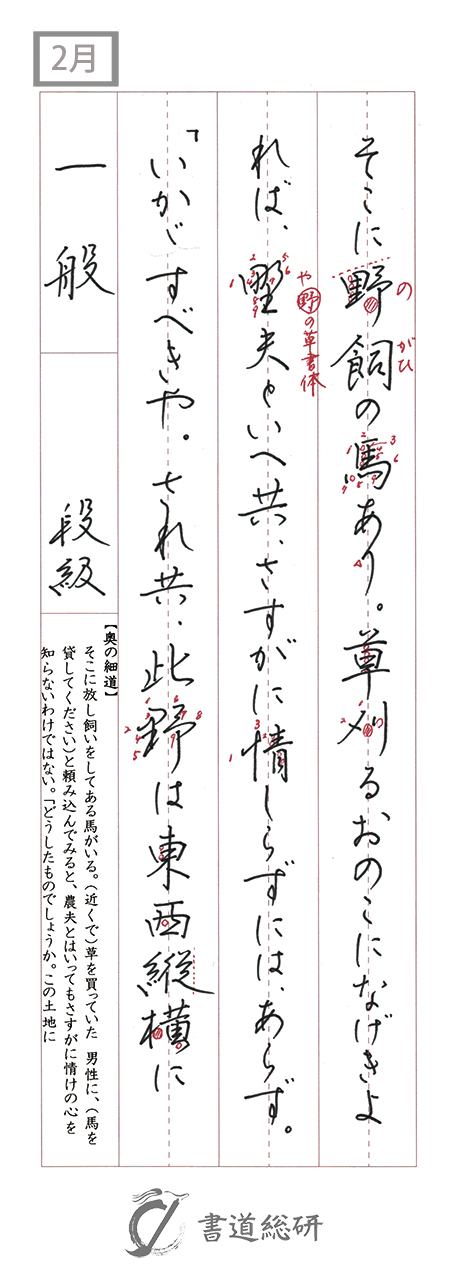 2月
そこに野飼の馬あり。草刈るおのこになげきよ
の
がひ
れば、野夫といへ共、さすがに情しらずには、あらず。
や
野の草書体
「いかゞすべきや。され共、此野は東西縦横に
一般
段級
【奥の細道】
そこに放し飼いをしてある馬がいる。(近くで)草を買っていた 男性に、(馬を
貸してください)と頼み込んでみると、農夫とはいってもさすがに情けの心を
知らないわけではない。「どうしたものでしょうか。この土地に
書道総研